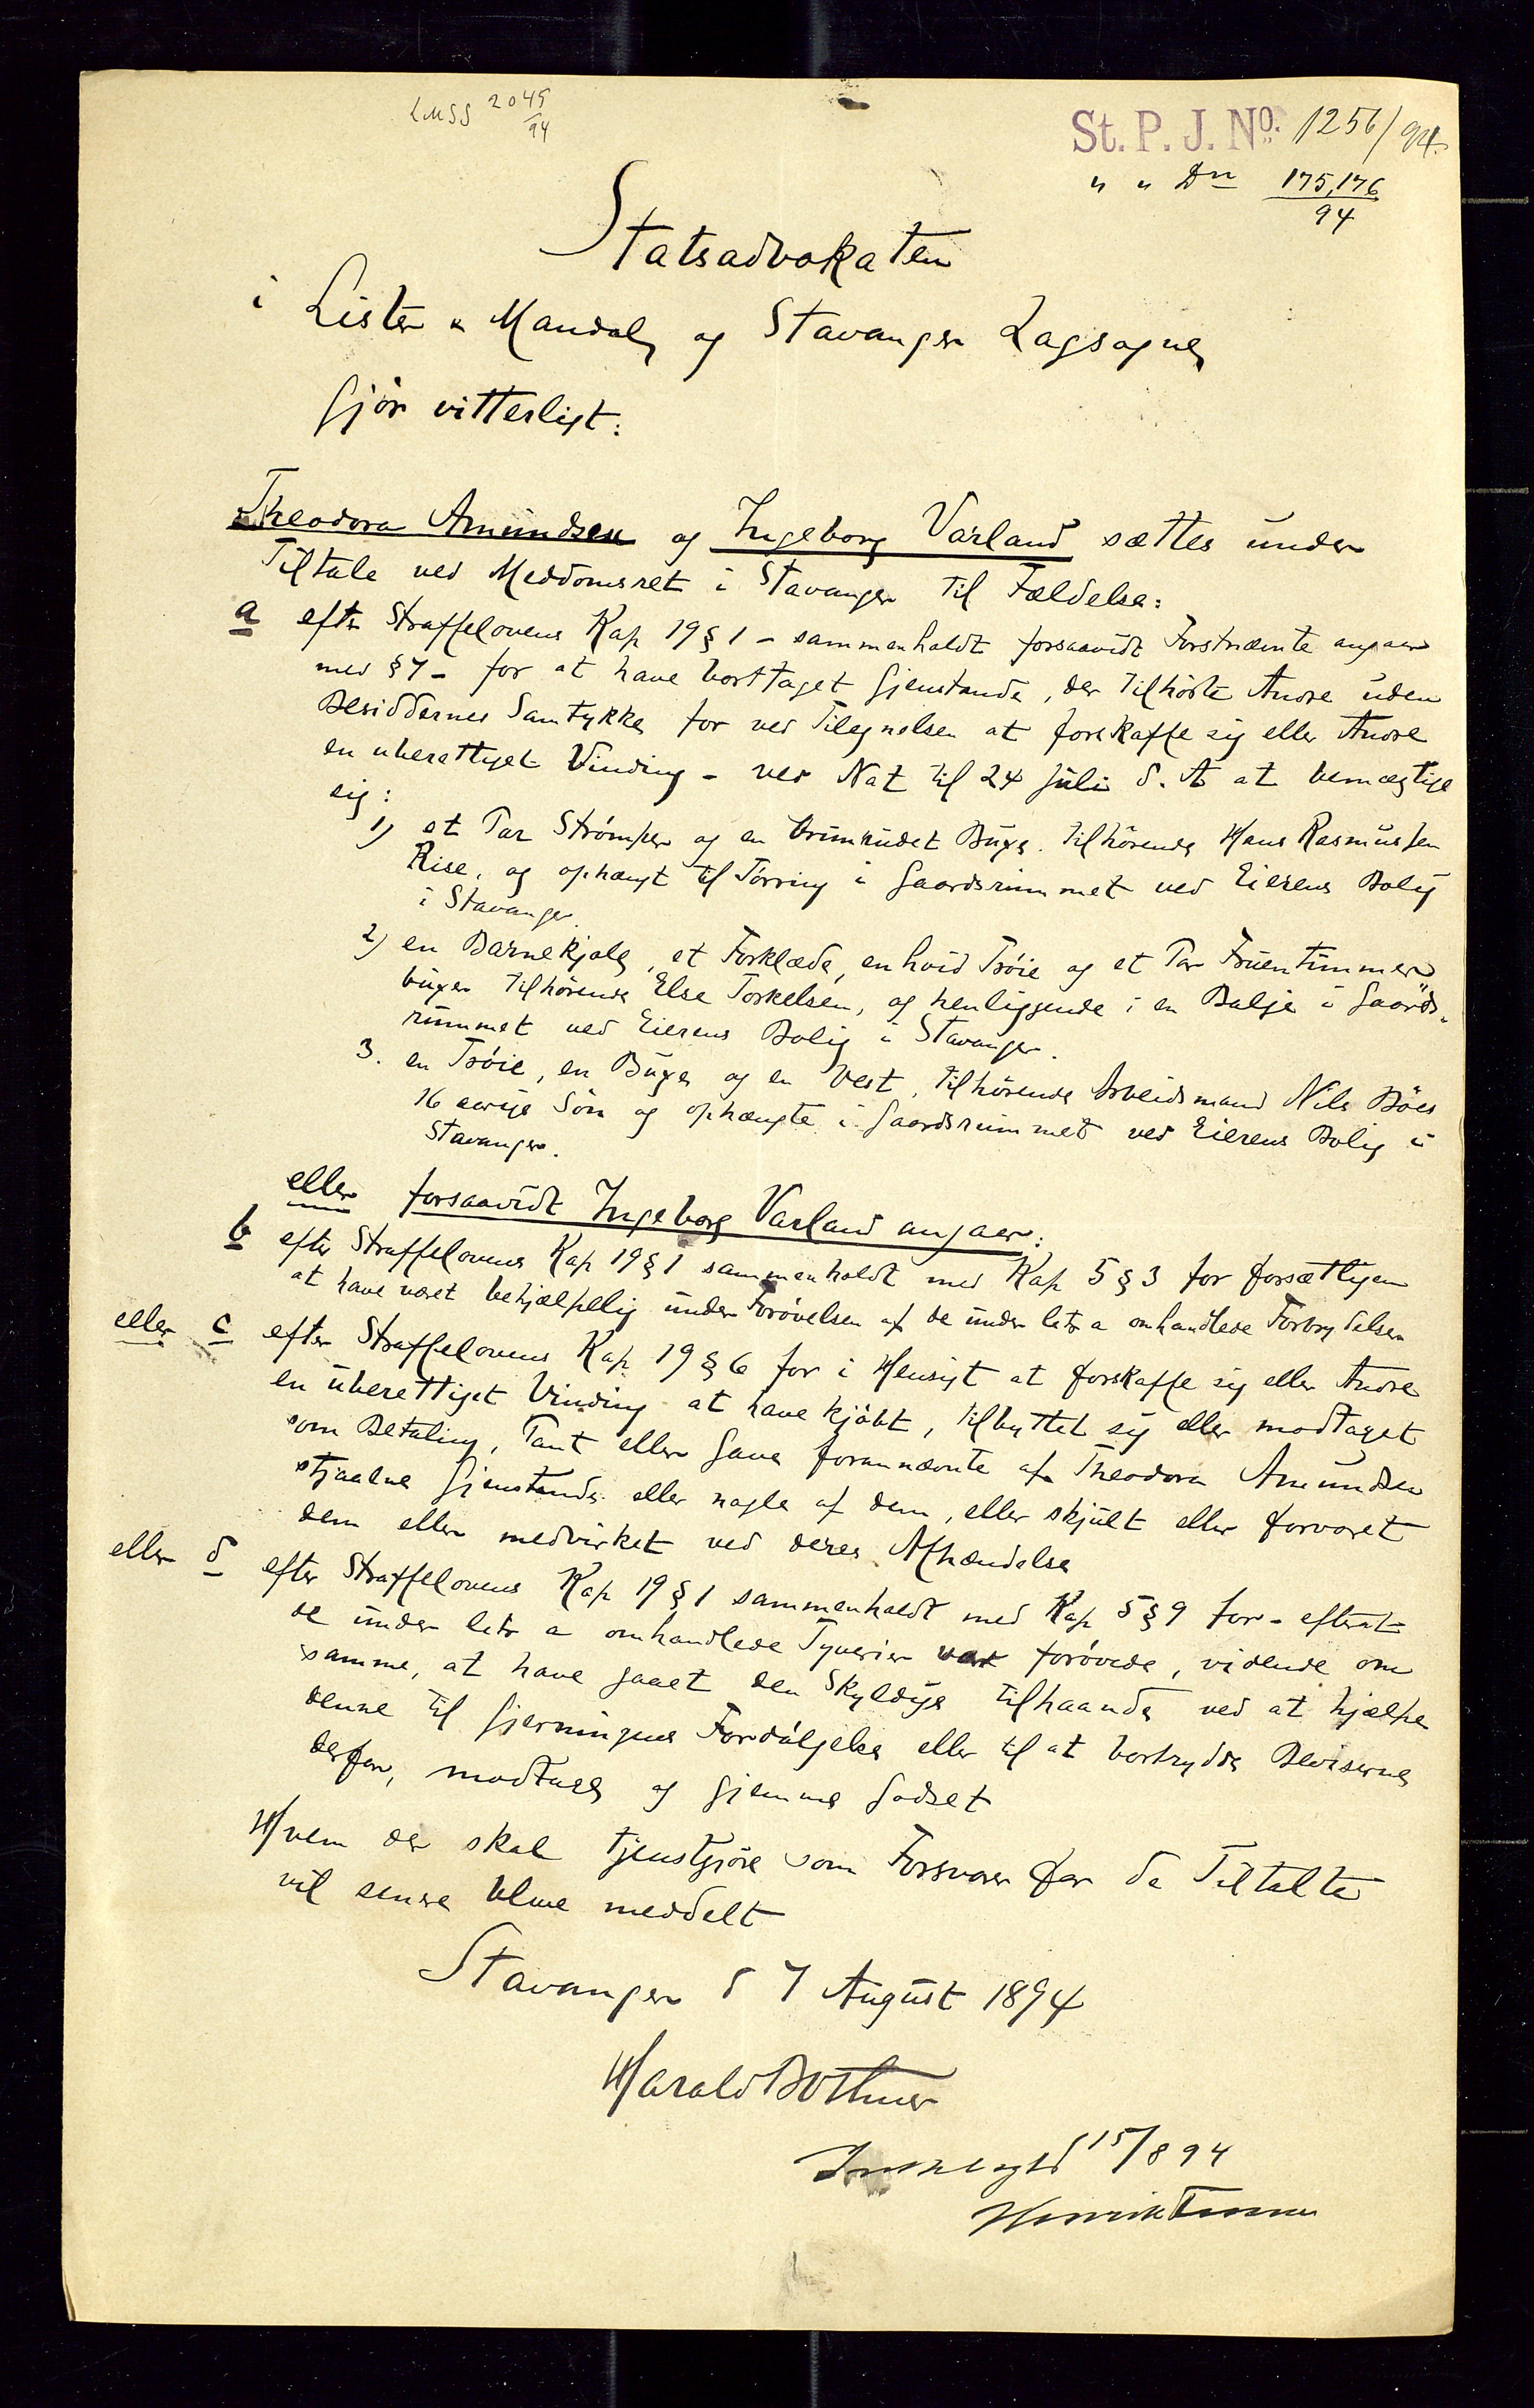 LMSS 2045/94
St. P. J. No. 1256/94.
" " Dn 175,176/94
Statsadvokaten
i Lister & Mandal og Stavanger Lagsogne
Gjør vitterligt:
Theodora Amundsen og Ingeborg Varland sættes under
Tiltale ved Meddomsret i Stavanger til Fældelse:
a efter Straffelovens Kap 19 § 1 - sammenholdt forsaavidt Førstnævnte angaar
med § 7 - for at have borttaget Gjenstande, der tilhørte Andre uden
Besiddernes Samtykke for ved Tilegnelsen at forskaffe sig eller Andre
en uberettiget Vinding - ved Nat til 24 Juli d. A at bemægtige
sig:
1) et Par Strømper og en brunrudet Buxe tilhørende Hans Rasmussen
Rise, og ophængt til Tørring i Gaardsrummet ved Eierens Bolig
i Stavanger.
2) en Barnekjole, et Forklæde, en hvid Trøie og et Par Fruentimmer
buxer tilhørende Else Torkelsen, og henliggende i en Balje i Gaards-
rummet ved Eierens Bolig i Stavanger.
3. en Trøie, en Buxe og en Vest, tilhørende Arbeidsmand Nils Bøes
16 aarige Søn og ophængte i Gaardsrummet ved Eierens Bolig i
Stavanger.
eller forsaavidt Ingeborg Varland angaar:
b efter Straffelovens Kap 19 § 1 sammenholdt med Kap 5 § 3 for forsætligen
at have været behjælpelig under Forøvelsen af de under litr a omhandlede Forbrydelser
eller c efter Straffelovens Kap 19 § 6 for i Hensigt at forskaffe sig eller Andre
en uberettiget Vinding at have kjøbt, tilbyttet sig eller modtaget
som Betaling, Pant eller Gave forannævnte af Theodora Amundsen
stjaalne Gjenstande eller nogle af dem, eller skjult eller forvaret
dem eller medvirket ved deres Afhændelse
eller d efter Straffelovens Kap 19 § 1 sammenholdt med Kap 5 § 9 for - efterat
de under litr a omhandlede Tyverier var forøvede, vidende om
samme, at have gaaet den Skyldige tilhaande ved at hjælpe
denne til Gjerningens Fordølgelse eller til at bortrydde Beviserne
derfor, modtage og gjemme Godset
Hvem der skal tjenstgjøre som Forsvarer for de Tiltalte
vil senere blive meddelt
Stavanger d 7 August 1894
Harald Bothner
15/8 94
Henrik